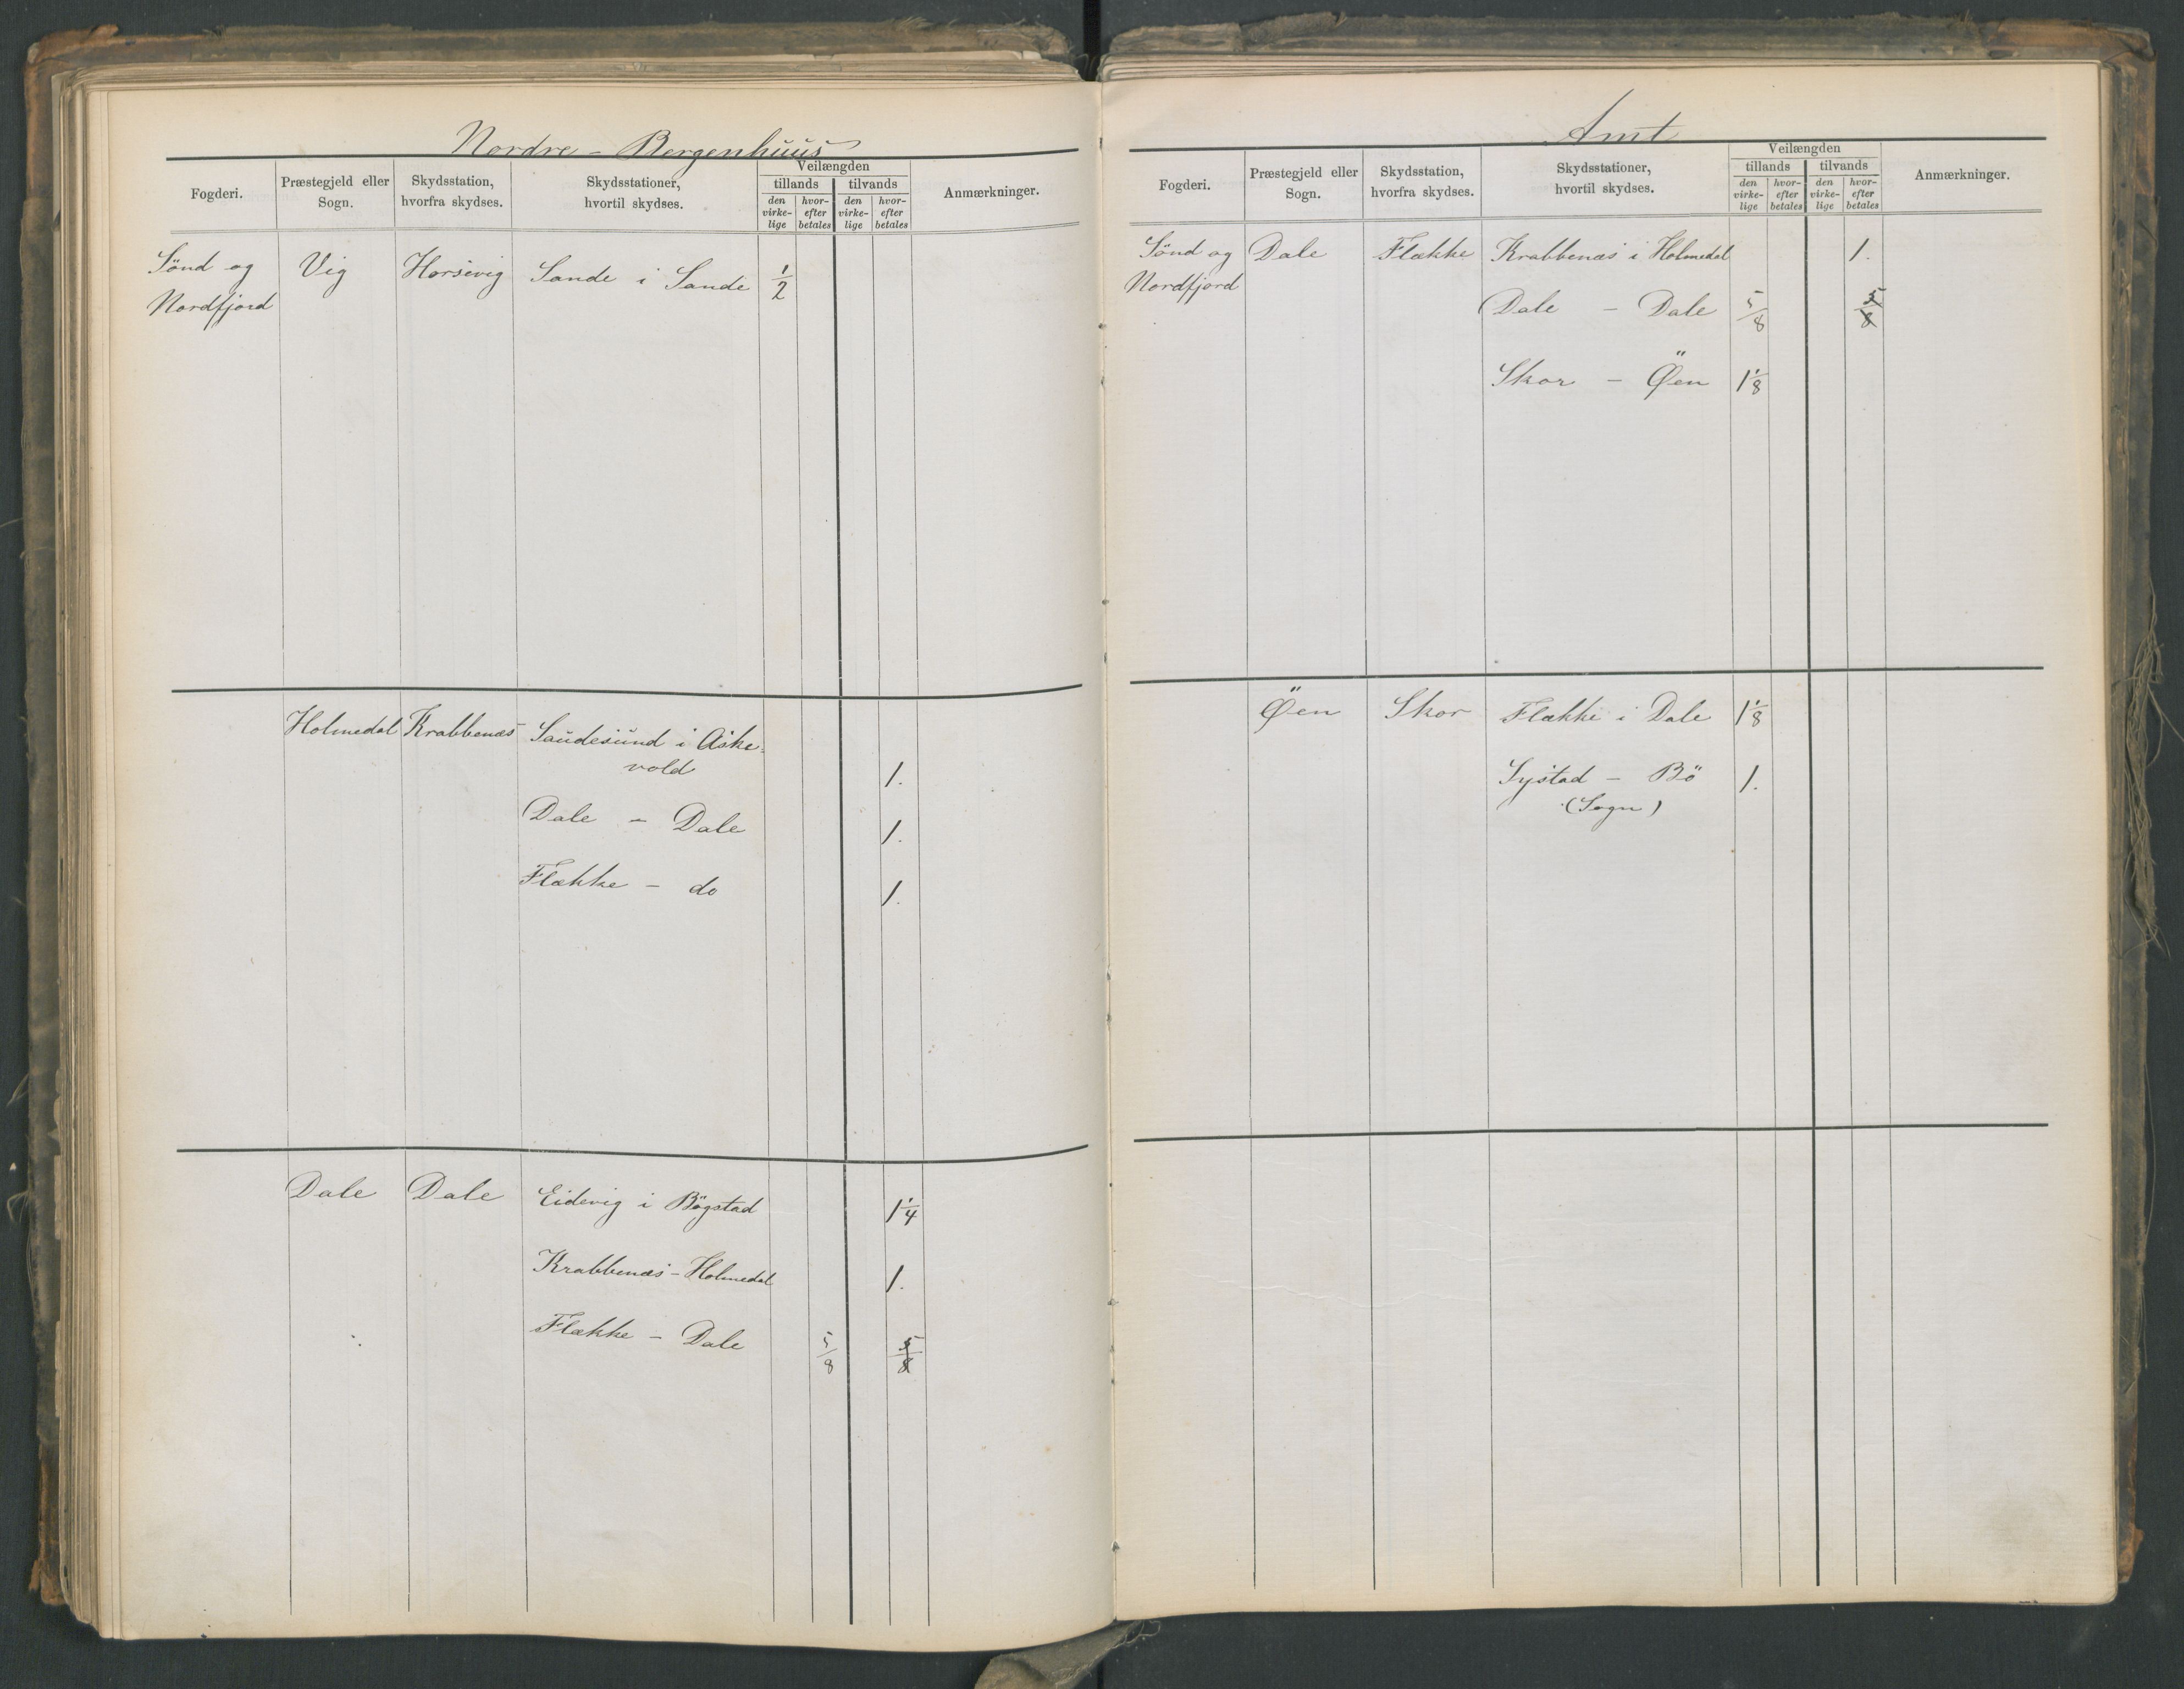 Nordre - Bergenhuus
Fogderi. Præstegjeld eller Sogn. Skydsstation, hvorfra skydses. Skydsstationer, hvortil skydses. Veilængden tillands tilvands Anmærkninger.
den virkelige hvorefter betales den virkelige hvorefter betales
Sönd og Vig Horsevig Sande i Sande 1/2
Nordfjord
Holmedal Krabbenæs Saudesund i Aske-
vold 1.
Dale - Dale 1.
Flække - do 1.
Dale Dale Eidevig i Bögstad 1 1/4
Krabbenæs - Holmedal 1.
Flække - Dale 5/8 5/8
Amt
Fogderi. Præstegjeld eller Sogn. Skydsstation, hvorfra skydses. Skydsstationer, hvortil skydses. Veilængden tillands tilvands Anmærkninger.
den virkelige hvorefter betales den virkelige hvorefter betales
Sönd og Dale Flække Krabbenæs i Holmedal 1.
Nordfjord
Dale - Dale 5/8 5/8
Skor - Øen 1 1/8
Øen Skor Flække i Dale 1 1/8
Systad - Bö 1.
(Sogn)